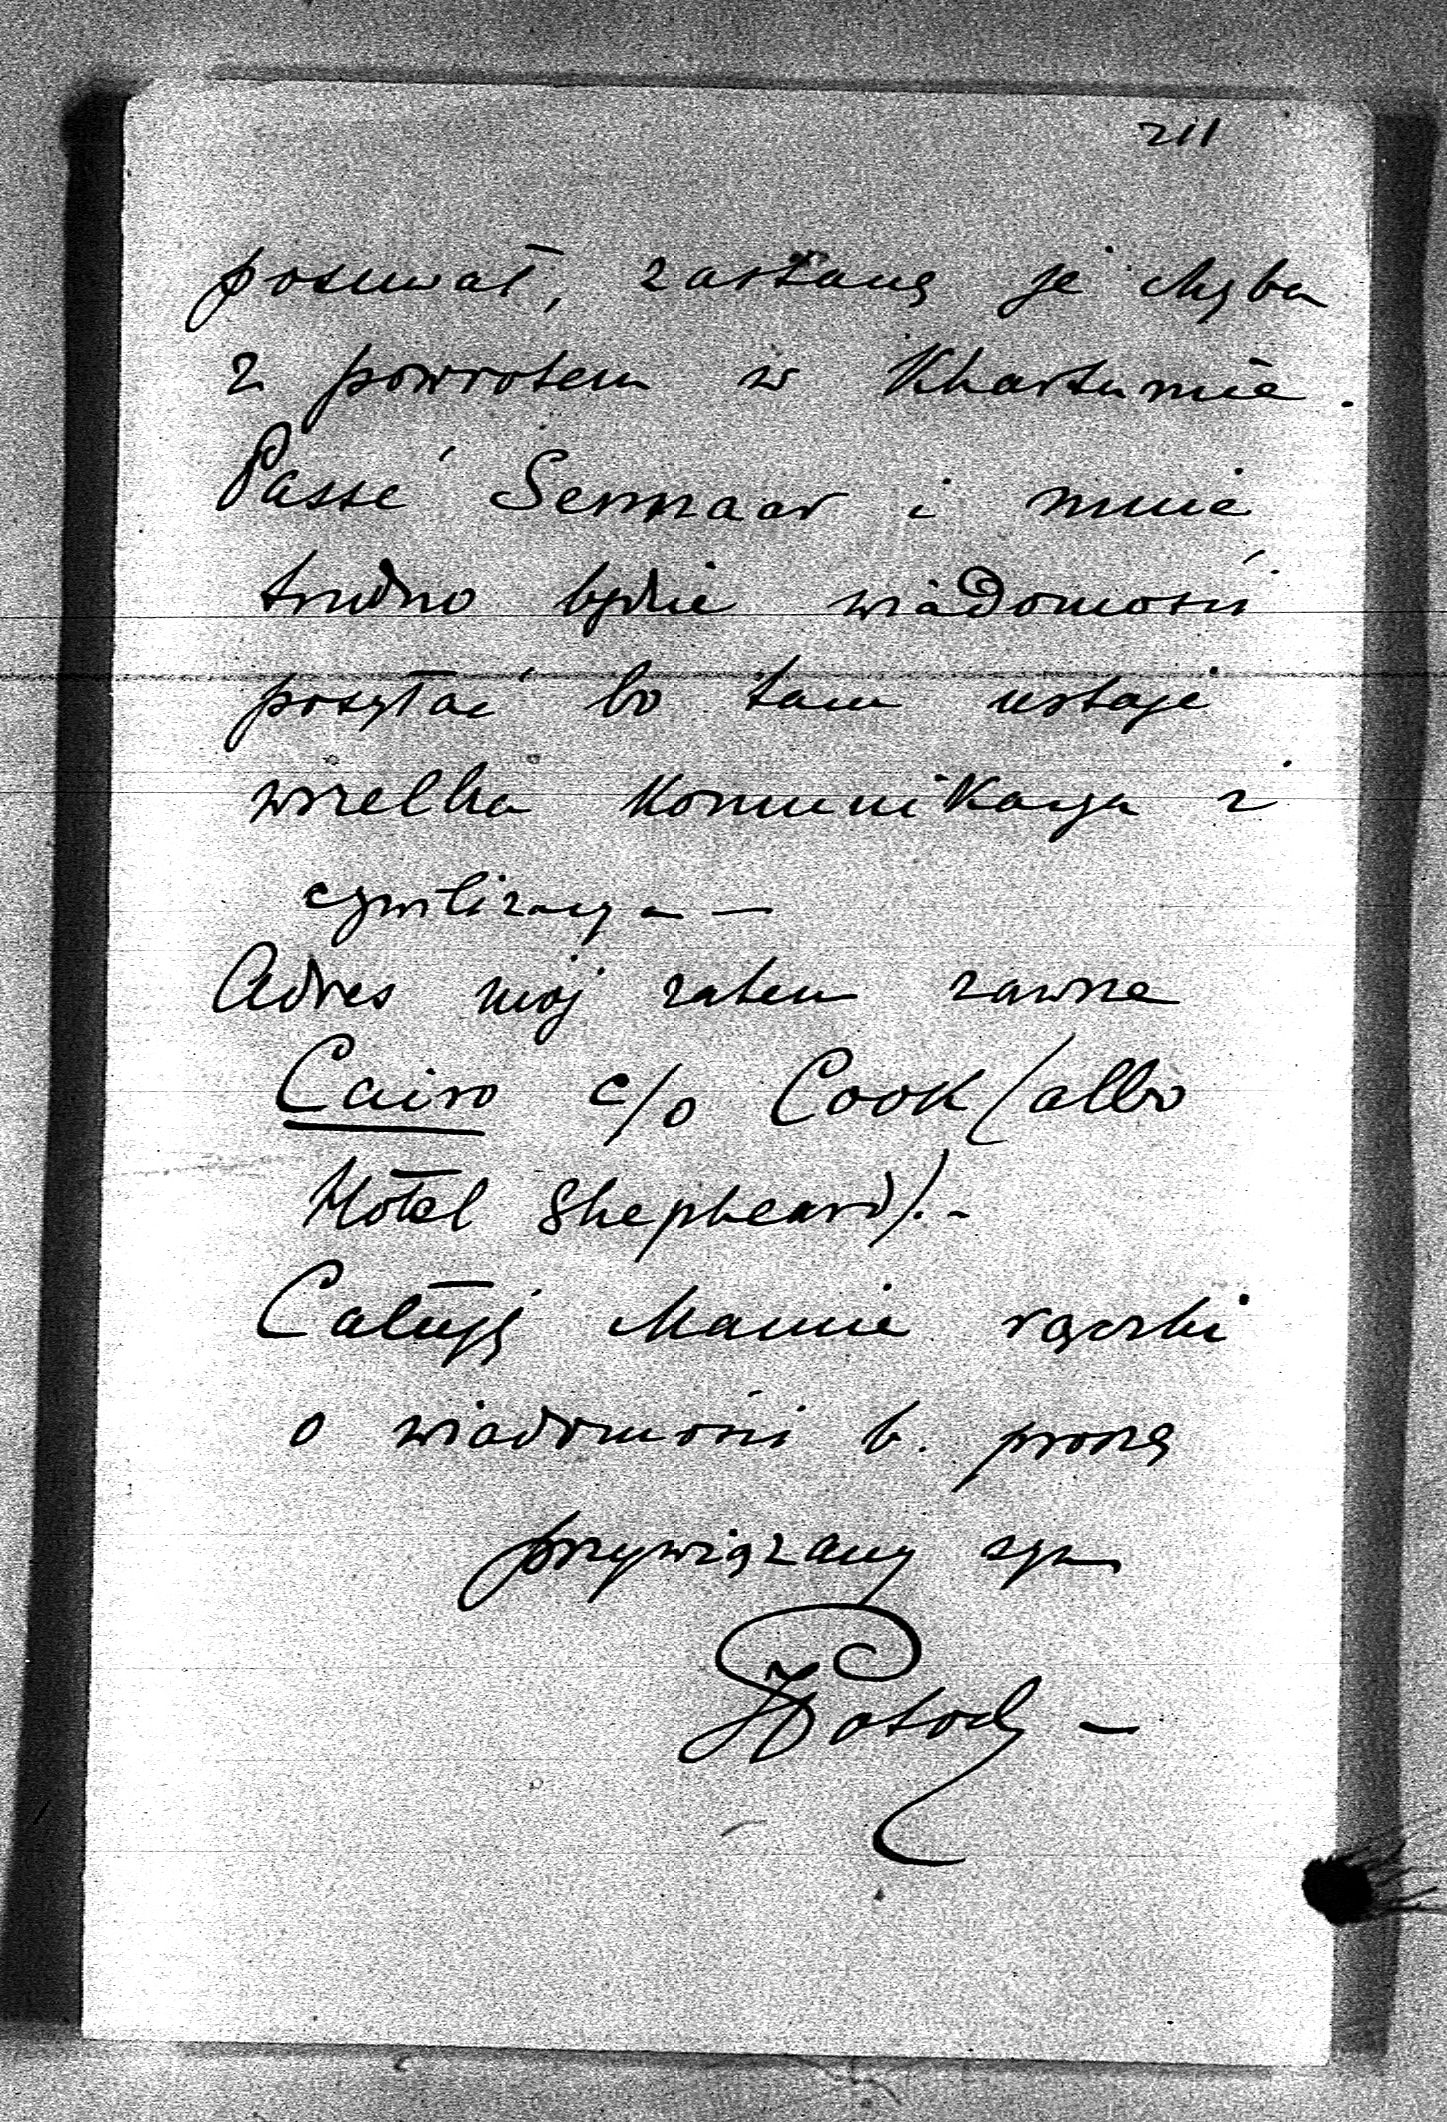 211
posuwał, zastanę je chyba
z powrotem w Khartumie.
Passé Sennaar i mnie
trudno będzie wiadomości
posyłać bo tam ustaje
wszelka komunikacya z
cywilizacyą —
Adres mój zatem zawsze
Cairo c/o Cook (albo
Hôtel Shepheard). -
Całuję Mamie rączki
o wiadomości b. proszę
przywiązany syn
Potocki —